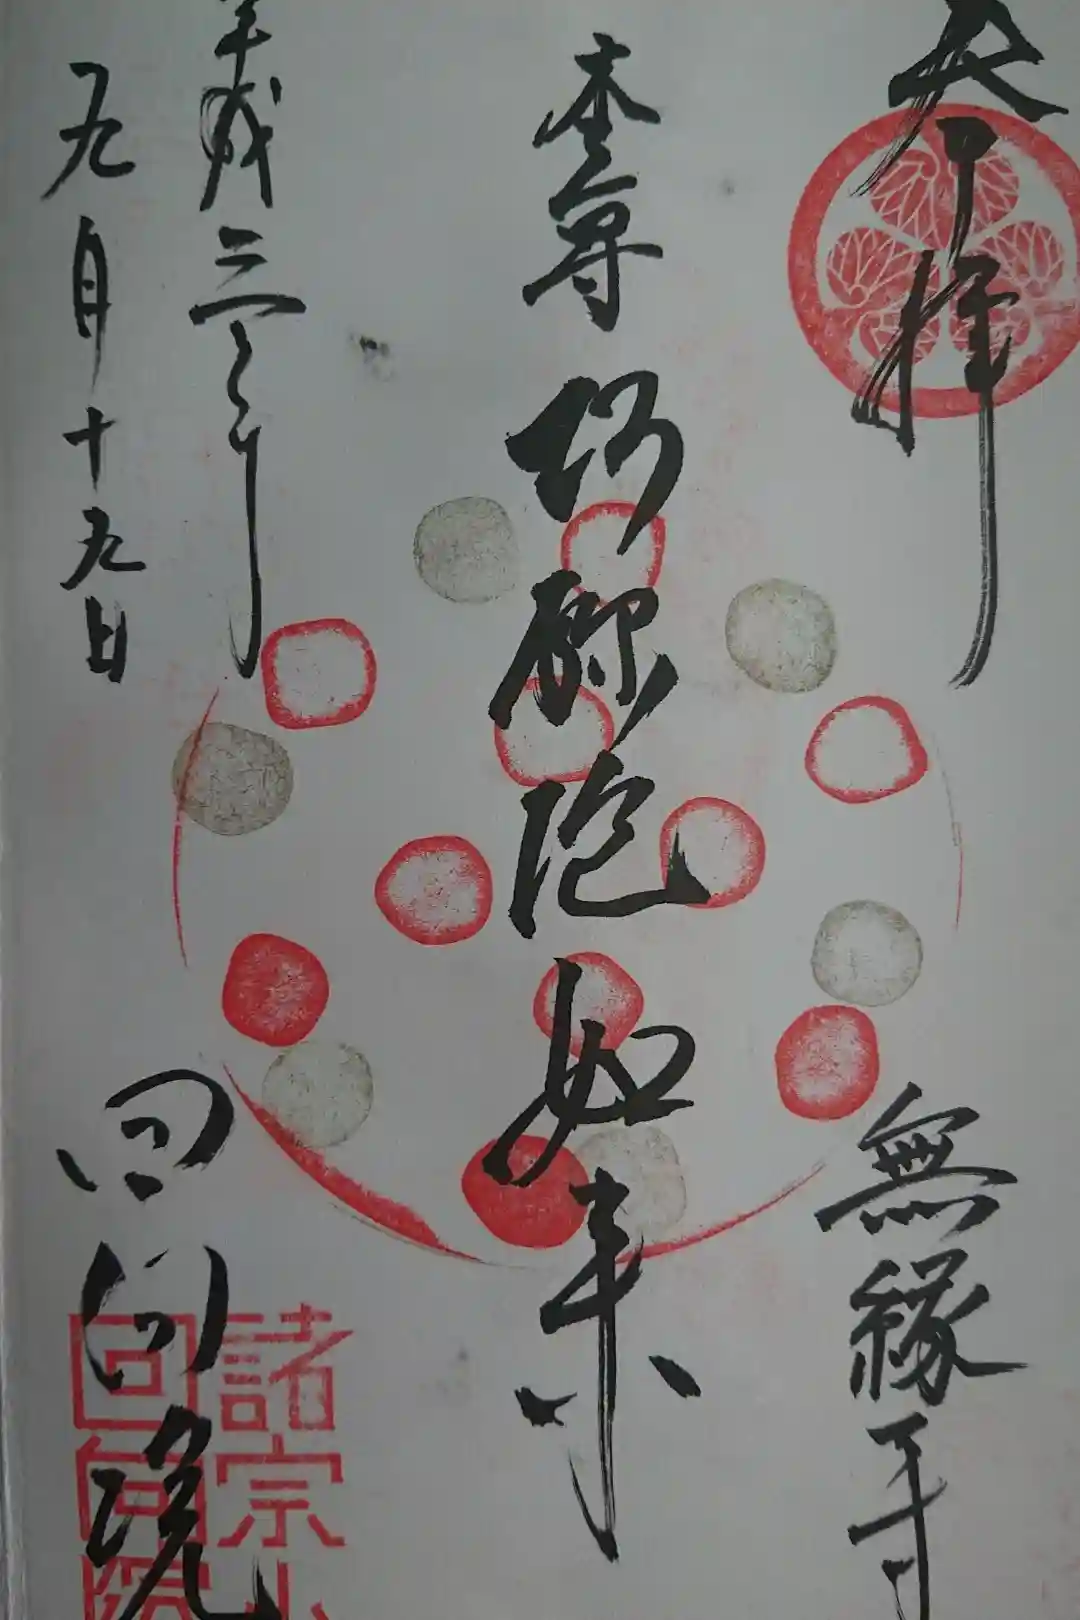 奉拝
無縁寺
本尊 阿弥陀如来
平成三十年
九月十九日
回向院
諸宗山
回向院